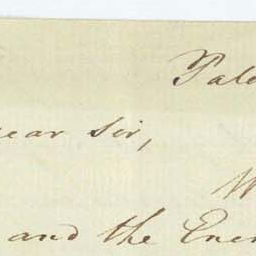 Pale
ear Sir,
W
and the Ene